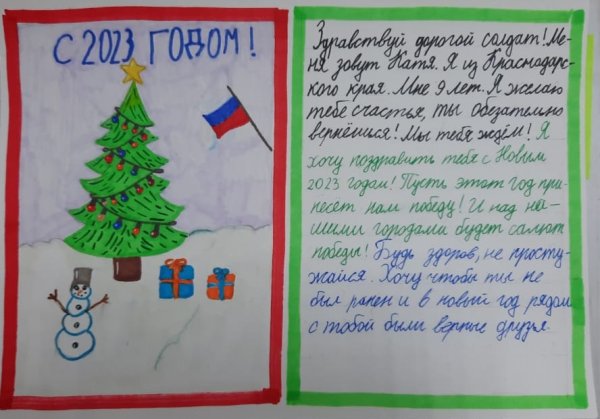 С 2023 ГОДОМ!
Здравствуй дорогой солдат! Ме-
ня зовут Катя. Я из Краснодарс-
кого края. Мне 9 лет. Я желаю
тебе счастья, ты обезательно
вернёшися! Мы тебя ждём! Я
хочу поздравить тебя с Новым
2023 годом! Пусть этот год при-
несёт нам победу! И над на-
шими городами будет салют
победы! Будь здоров, не просту-
жайся. Хочу чтобы ты не
был ранен и в новый год рядом
с тобой были верные друзья.